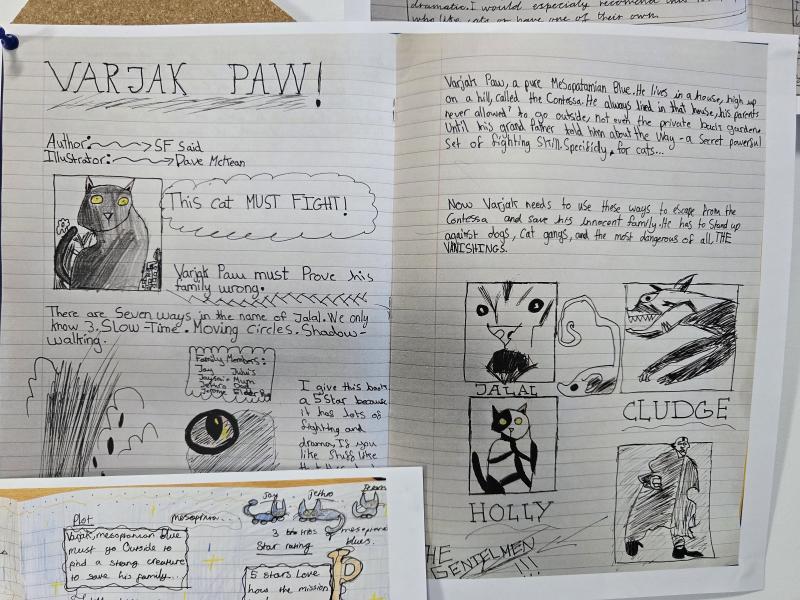 dramatic. I would especialy recomend this to
who like cats or have one of their own.
VARJAK PAW!
Author: SF Said
Illustrator: Dave McKean
This cat MUST FIGHT!
Varjak Paw must Prove his
family wrong.
There are Seven ways, in the name of Jalal. We only
know 3, Slow-Time. Moving Circles. Shadow-
walking.
Family Members:
Jay Julius
Mum
Dad
I give this book
a 5 Star because
it has lots of
fighting and
drama, If you
like Stuff like
Varjak Paw, a pure Mesopotamian Blue. He lives in a house, high up
on a hill, called the Contessa. He always lived in that house, his parents
never allowed to go outside, not even the private back gardens
Until his grand father told him about the Way - a Secret powerful
Set of fighting Skill. Specificly, for cats...
Now Varjak needs to use these ways to escape from the
Contessa and save his innocent family. He has to Stand up
against dogs, Cat gangs, and the most dangerous of all, THE
VANISHINGS.
JALAL
CLUDGE
HOLLY
HE
GENTELMEN
!!!
Plot
Varjak, mesoptanian blue
must go Outside to
find a strang creature
to save his family...
Jay
Jethro
3
blues.
Star rating
5 stars Love
how the mission
P